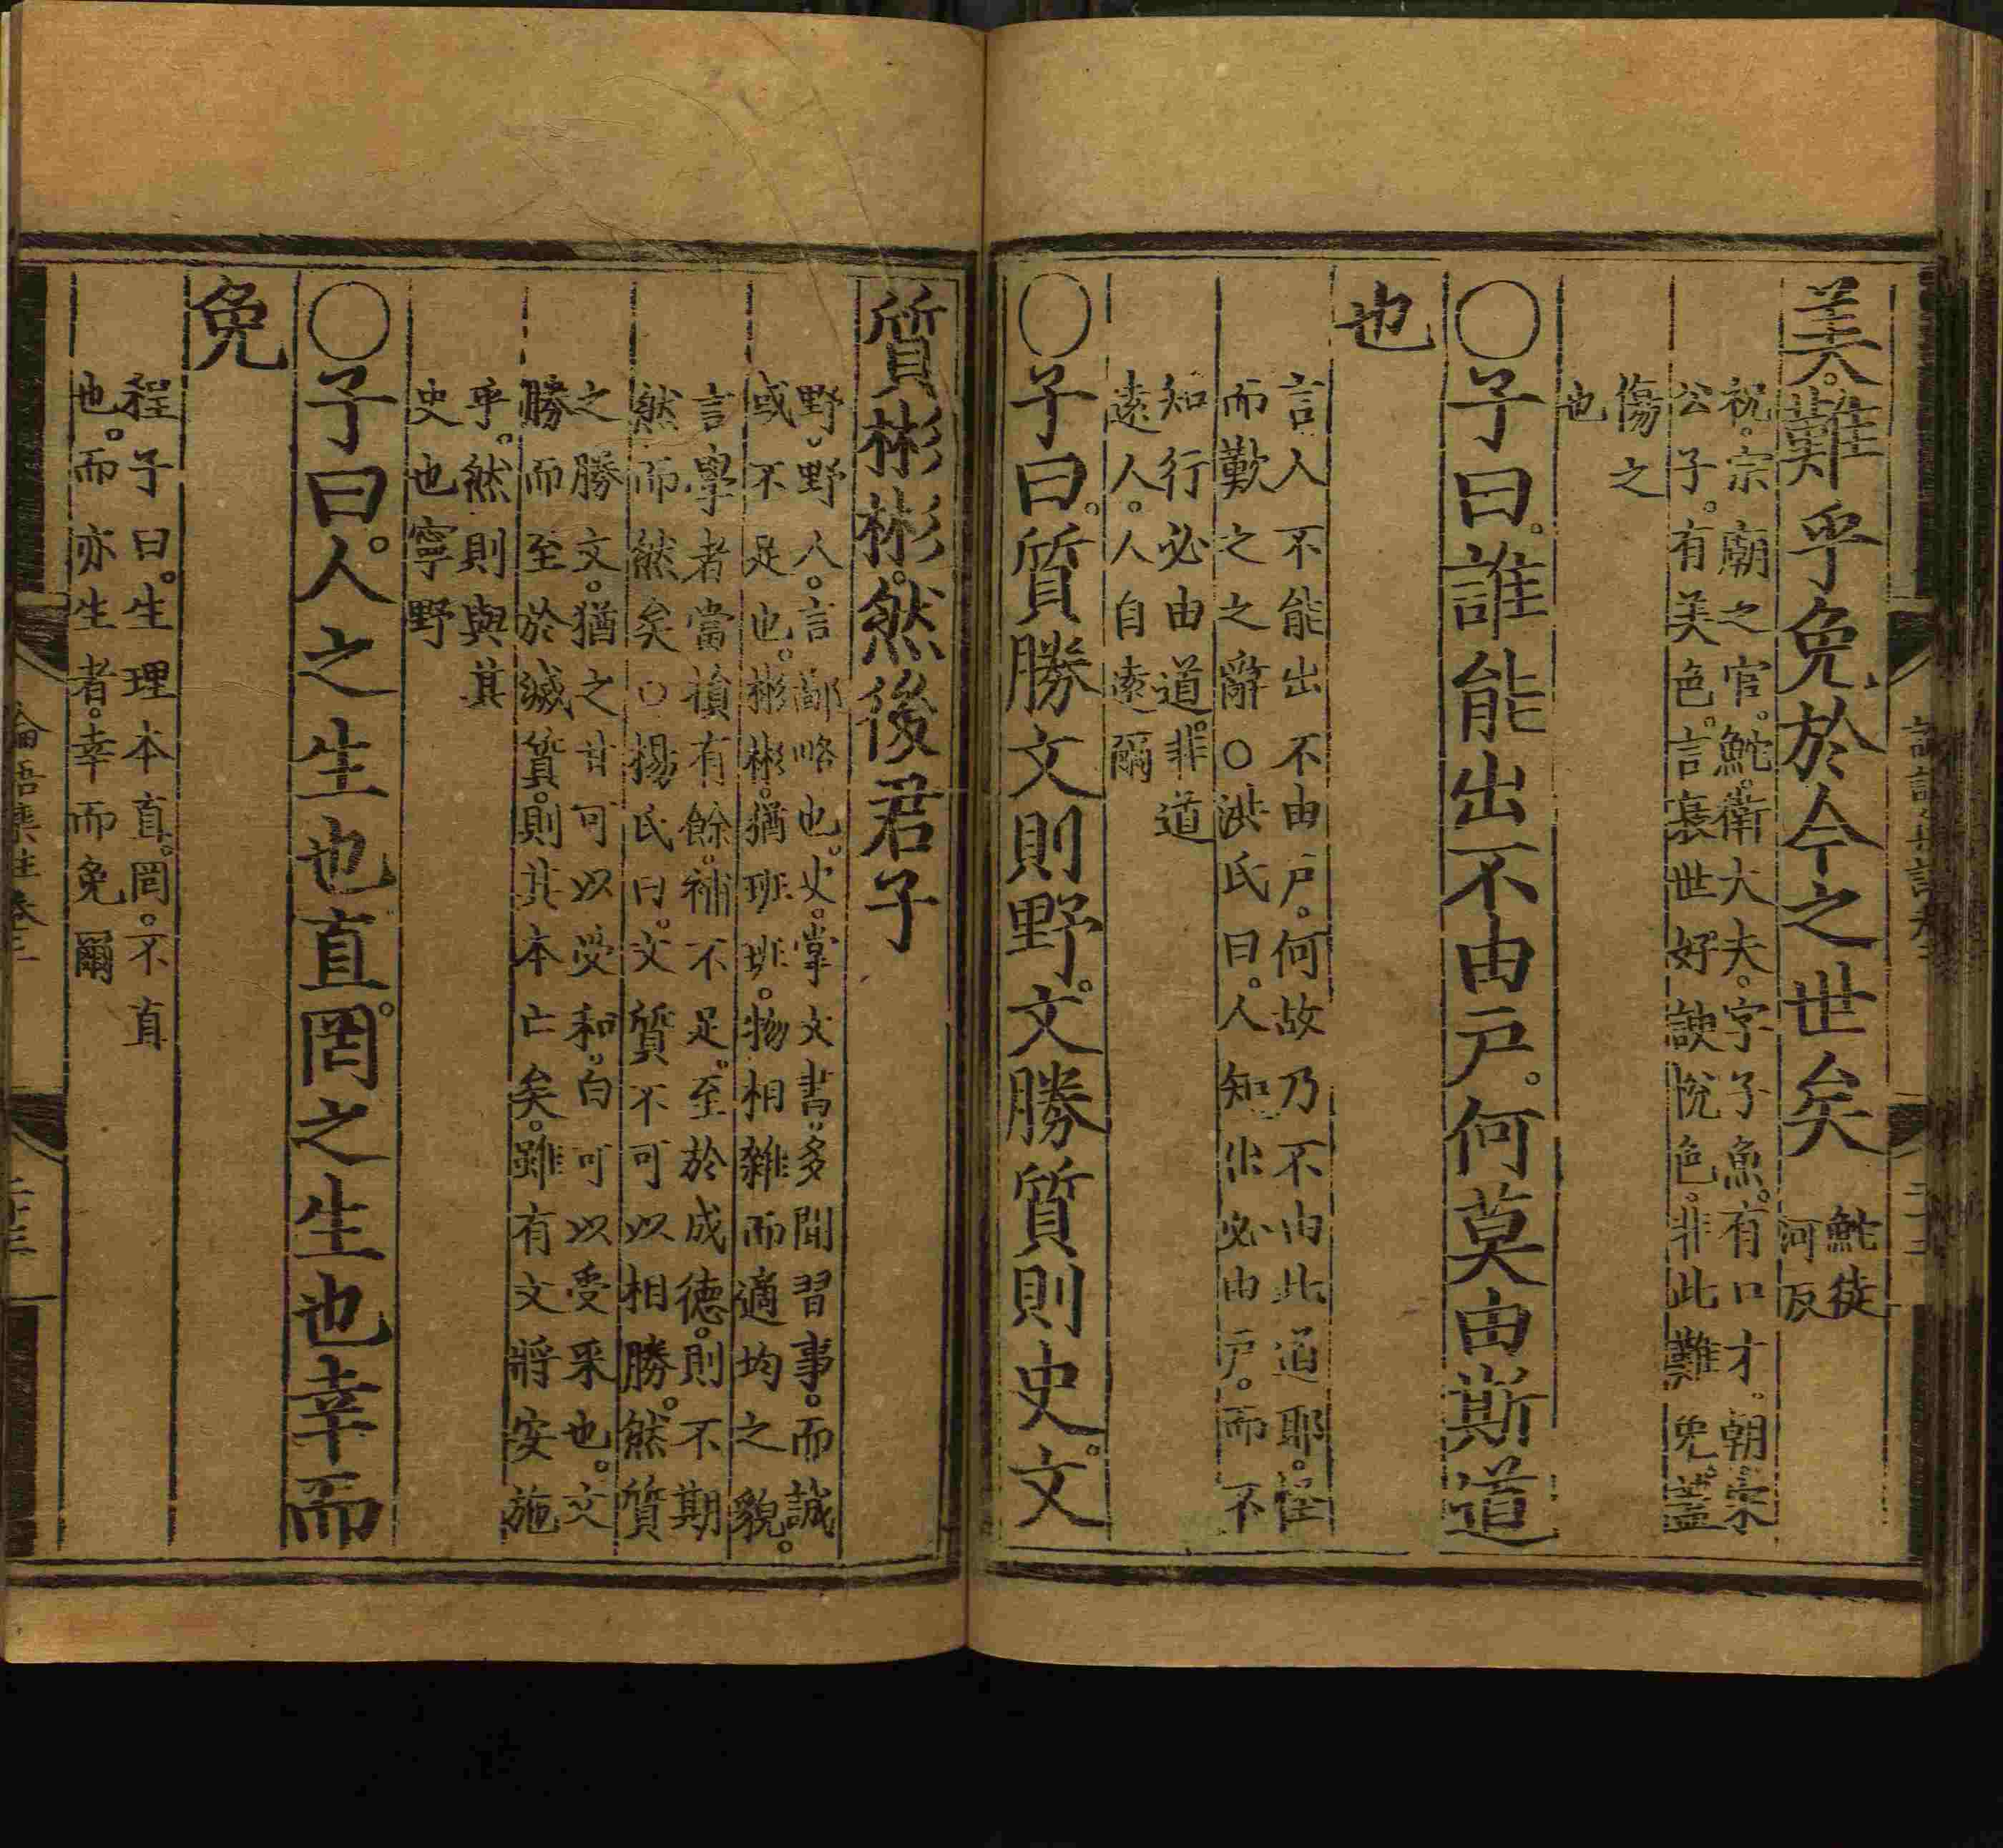 美。難乎免於今之世矣
鮀徒
河反
祝。宗廟之官。鮀。衛大夫。字子魚。有口才。朝。宋
公子。有美色。言衰世好諛悅色。非此難免。蓋
傷之
也
○子曰。誰能出不由戶。何莫由斯道
也
言人不能出不由戶。何故乃不由此道耶。怪
而歎之之辭○洪氏曰。人知出必由戶。而不
知行必由道。非道
遠人。人自遠爾
○子曰。質勝文則野。文勝質則史。文
質彬彬。然後君子
野。野人。言鄙略也。史。掌文書。多聞習事。而誠
或不足也。彬彬。猶班班。物相雜而適均之貌。
言學者當損有餘。補不足。至於成德。則不期
然而然矣○楊氏曰。文質不可以相勝。然質
之勝文。猶之甘可以受和。白可以受采也。文
勝而至於滅質。則其本亡矣。雖有文將安施
乎。然則與其
史也寧野
○子曰。人之生也直。罔之生也幸而
免
程子曰。生理本直。罔。不直
也。而亦生者。幸而免爾
論語集註卷三
二十三